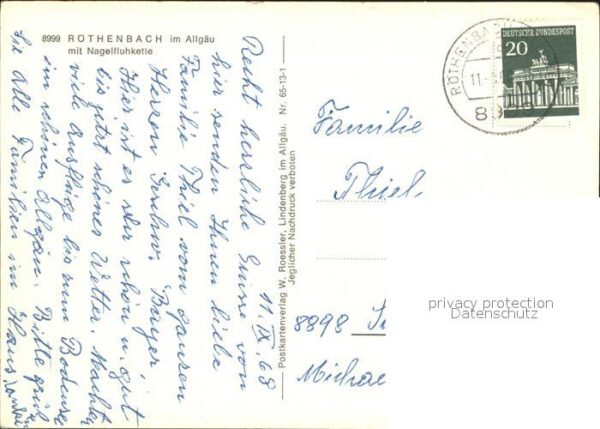 8999 RÖTHENBACH im Allgäu
mit Nagelfluhkette
11. IX. 68
Recht herzliche Grüsse von
hier senden Ihnen liebe
Familie Thiel vom ganzen
Herzen Bayer
Hier ist es sehr schön u. gut
bis jetzt schönes Wetter. Machten
viele Ausflüge bis zum Bodensee
im schönen Allgäu. Bitte
Sie Alle Familien im Haus
Postkartenverlag W. Roessler, Lindenberg im Allgäu. Nr. 65-13-1
Jeglicher Nachdruck verboten
RÖTHENBACH
11.
8999
DEUTSCHE BUNDESPOST
20
Familie
Thiel
8898
Michae
privacy protection
Datenschutz